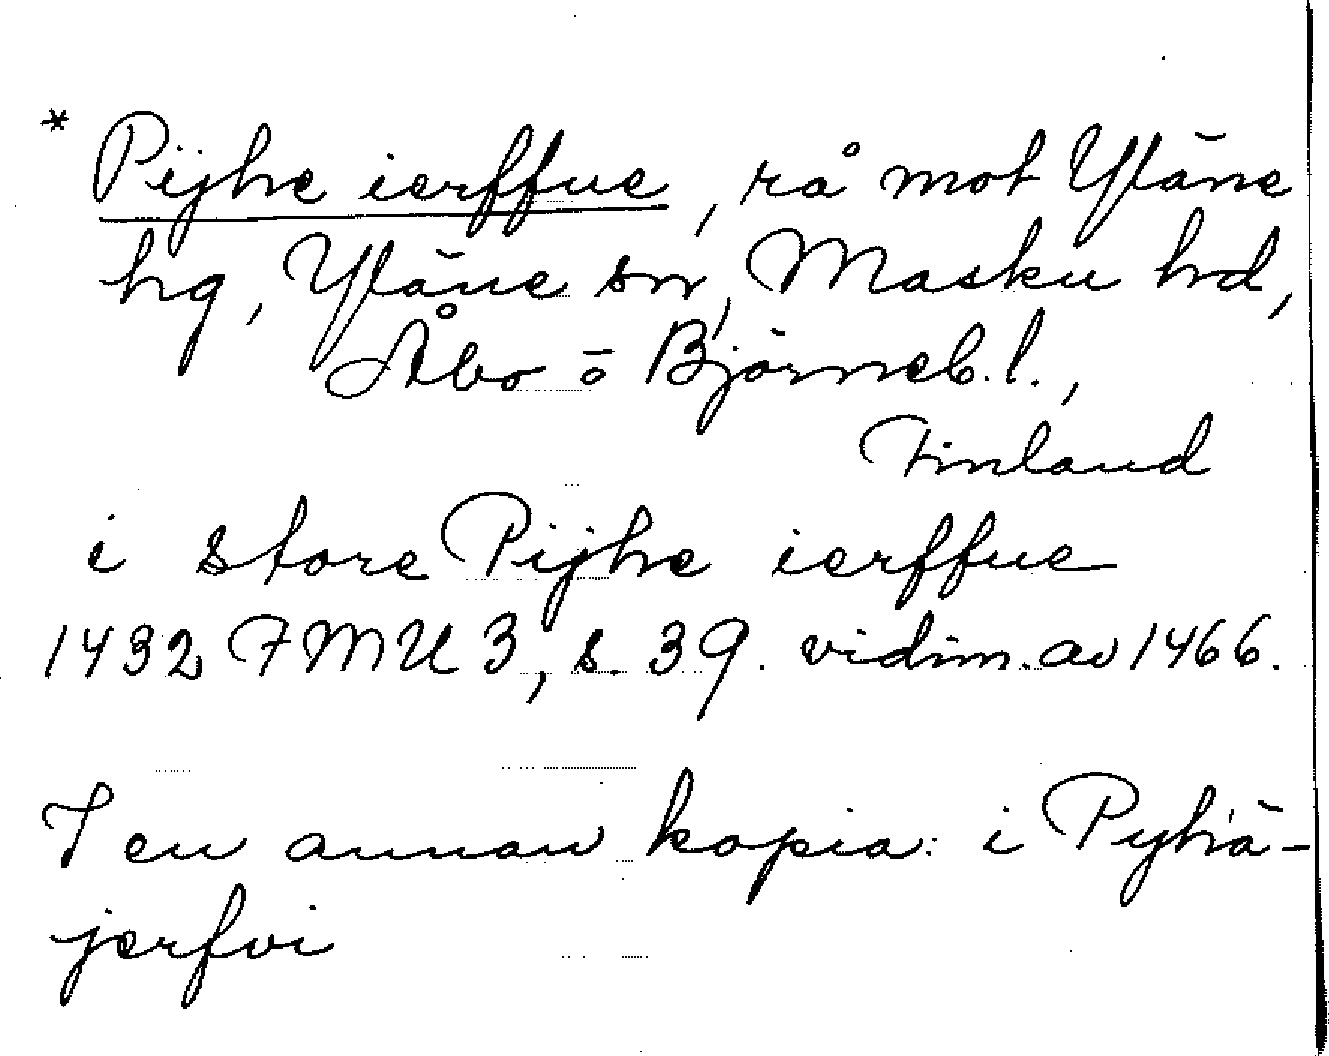 * Pijhe ierffue, rå mot Yläne
hg, Yläne sn, Masku hd,
Åbo o Björneb. l.,
Finland
i store Pijhe ierffue
1432 FMU 3, s. 39. vidim. av 1466.
I en annan kopia: i Pyhä-
jerfvi